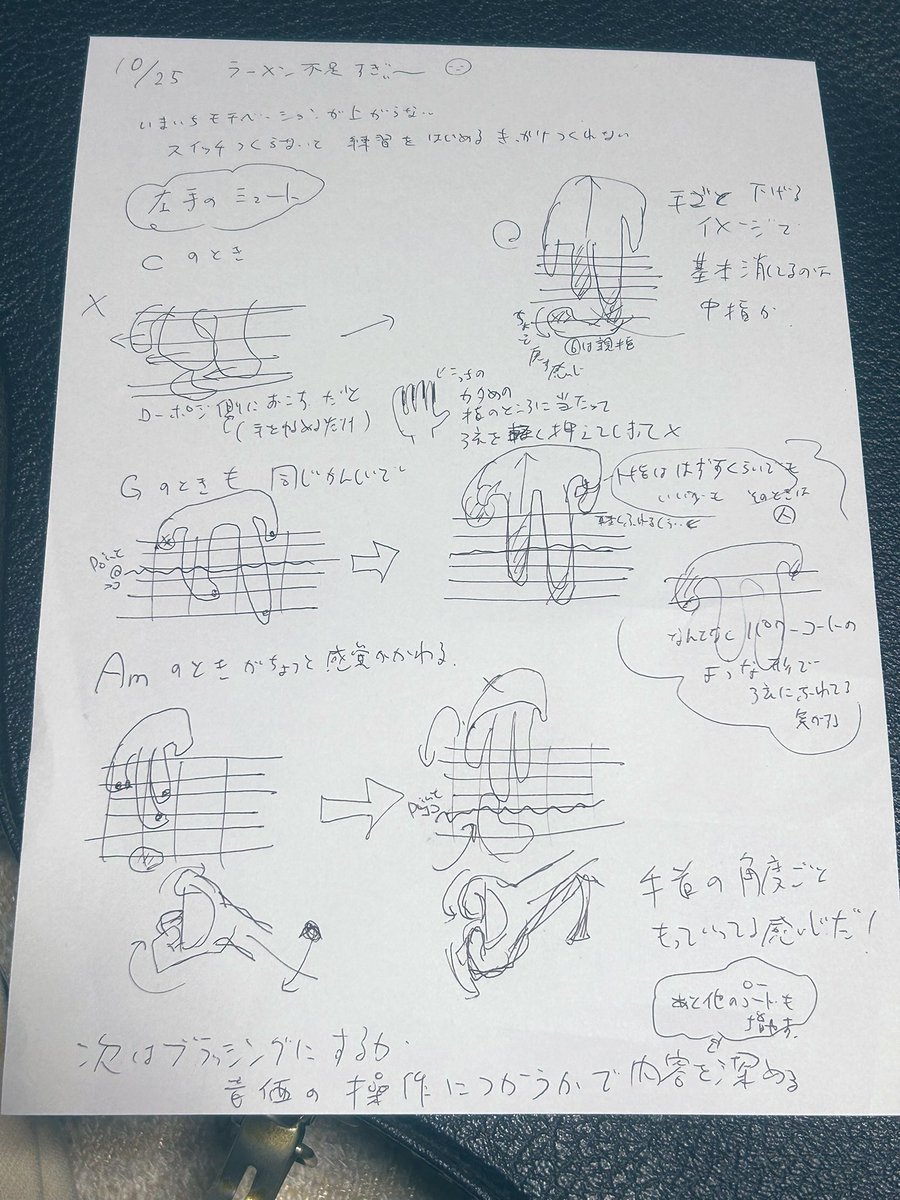 10/25 ラーメン不足すぎ〜
いまいちモチベーションが上がらない
スイッチつくらないと 練習をはじめるきっかけつくれない
左手のミュート
Cのとき
手ごと 下げる
イメージで
基本消してるのは
中指か
X
ちょっと
戻す感じ
⑥は親指
ローポジ側におこすだと
(手をゆるめるだけ)
こっちの
カタめの
指のところに当たって
3弦を軽く押えてしまって×
Gのときも 同じかんじで
はずすくらいでも
いいかも そのときは
人
軽くふれるくらい
Point
ココ
なんとなくパワーコードの
ような形で
3弦にふれてる
気がする
Amのときがちょっと感覚がかわる.
Point
手首の角度ごと
もっていってる感じだ!
あと他のコードも
増やす
次はブラッシングにするか
音価の操作につかうかで 内容を深める